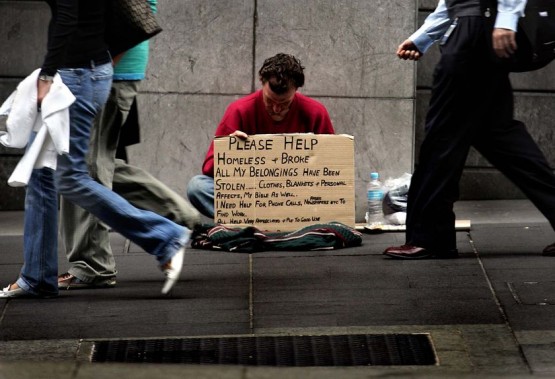 PLEASE HELP
HOMELESS + BROKE
ALL MY BELONGINGS HAVE BEEN
STOLEN.... CLOTHES, BLANKETS + PERSONAL
AFFECTS, MY BIBLE AS WELL.
I NEED HELP FOR PHONE CALLS, NEWSPAPERS ETC TO
FIND WORK.
ALL HELP VERY APPRECIATED + PUT TO GOOD USE